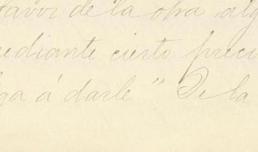 favor de la obra alg
mediante cierto preci
ga á darle" De la